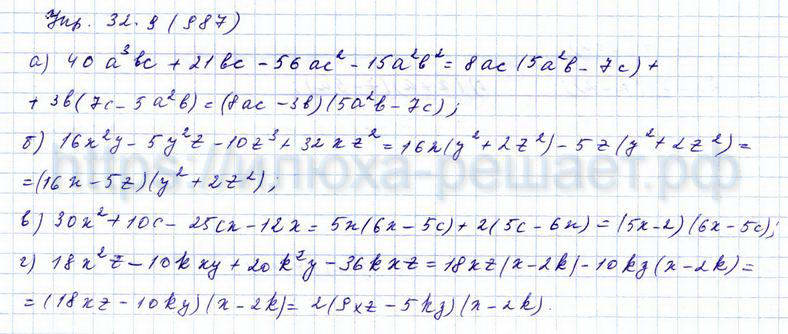 Упр. 32.9 (987)
а) 40a³bc + 21bc - 56ac² - 15a²b² = 8ac(5a²b - 7c) +
+ 3b(7c - 5a²b) = (8ac - 3b)(5a²b - 7c);
б) 16x²y - 5y²z - 10z³ + 32xz² = 16x(y² + 2z²) - 5z(y² + 2z²) =
= (16x - 5z)(y² + 2z²);
https://илюха-решает.рф
в) 30x² + 10c - 25cx - 12x = 5x(6x - 5c) + 2(5c - 6x) = (5x - 2)(6x - 5c);
г) 18x²z - 10kxy + 20k²y - 36kxz = 18xz(x - 2k) - 10kz(x - 2k) =
= (18xz - 10ky)(x - 2k) = 2(9xz - 5kz)(x - 2k).